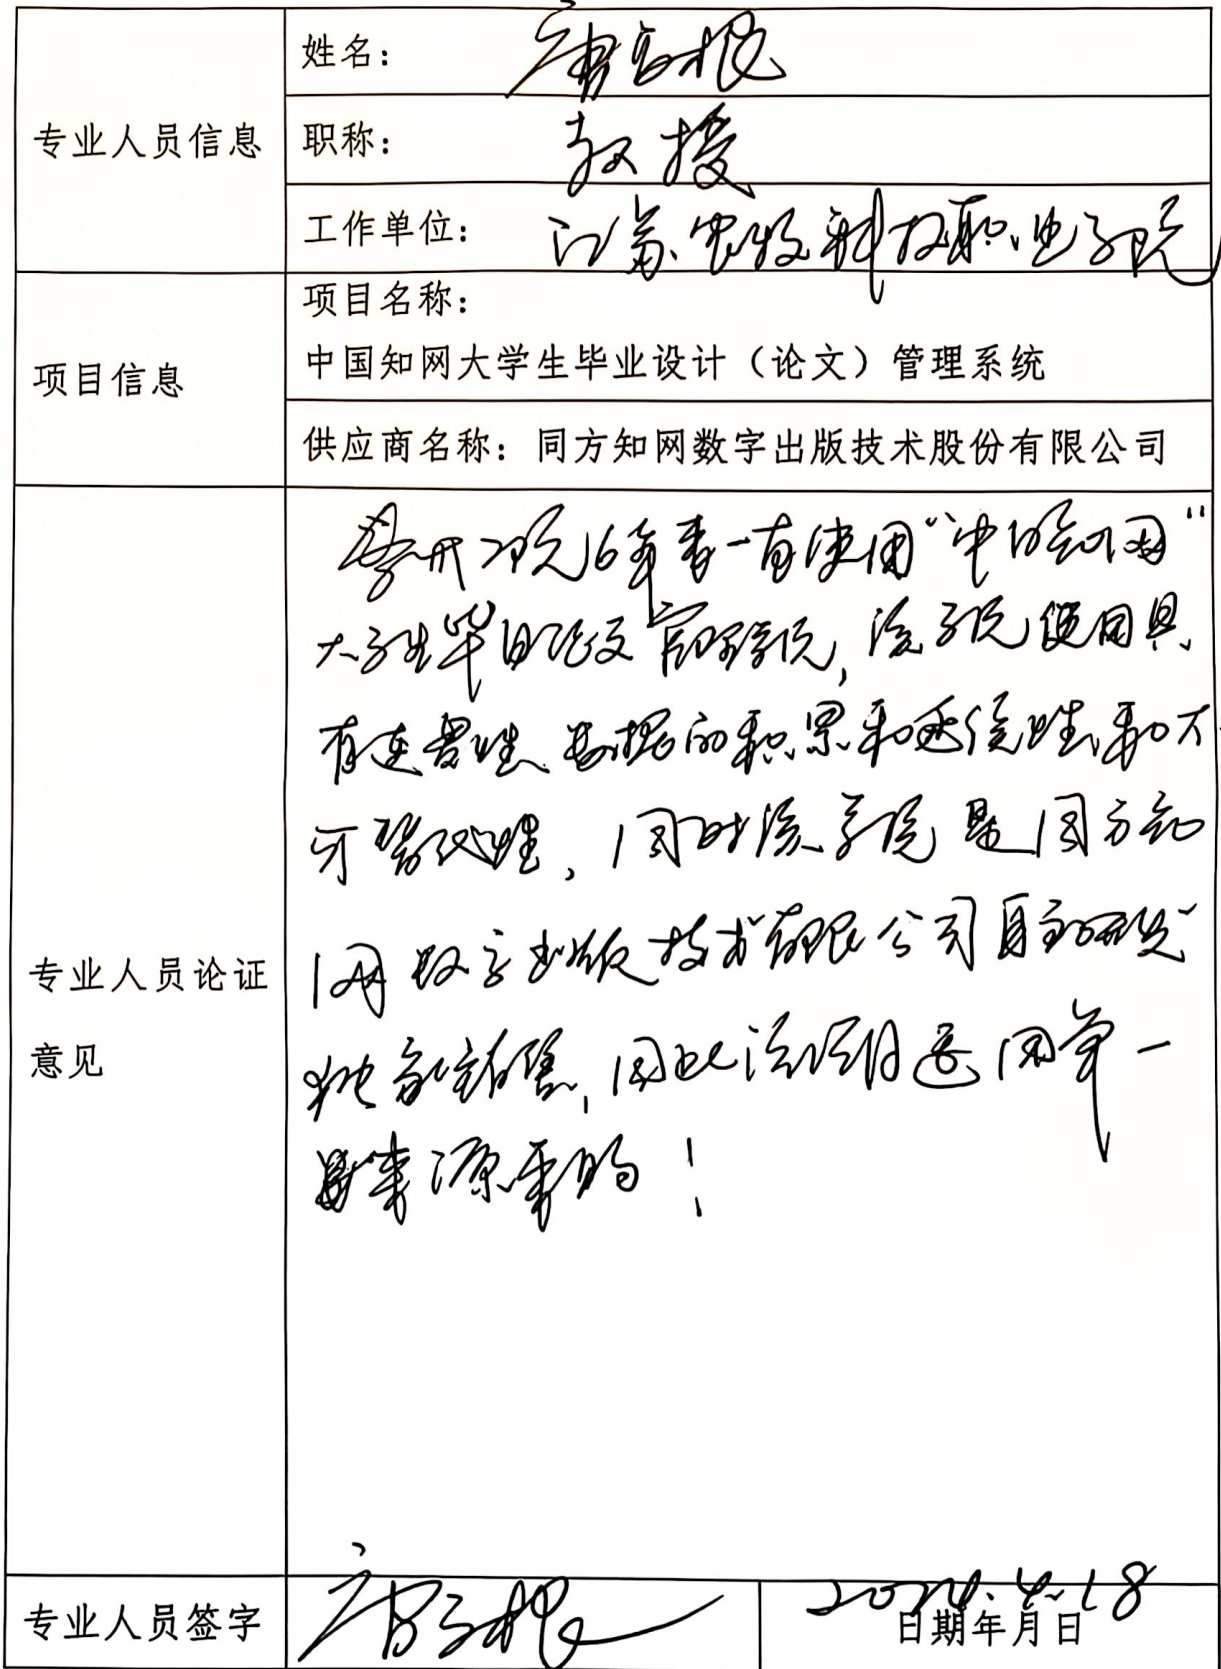 专业人员信息
姓名：
职称：教授
工作单位：江苏农牧科技职业学院
项目信息
项目名称：
中国知网大学生毕业设计（论文）管理系统
供应商名称：同方知网数字出版技术股份有限公司
专业人员论证
意见
年来一直使用“中国知网”
大学生毕业论文管理系统，该系统使用具
有连贯性、数据的积累和延续性、和不
可替代性，同时该系统是同方知
网数字出版技术有限公司自主研发
独家销售，因此该项目适用单一
来源采购！
专业人员签字
2024.4.18
日期年月日